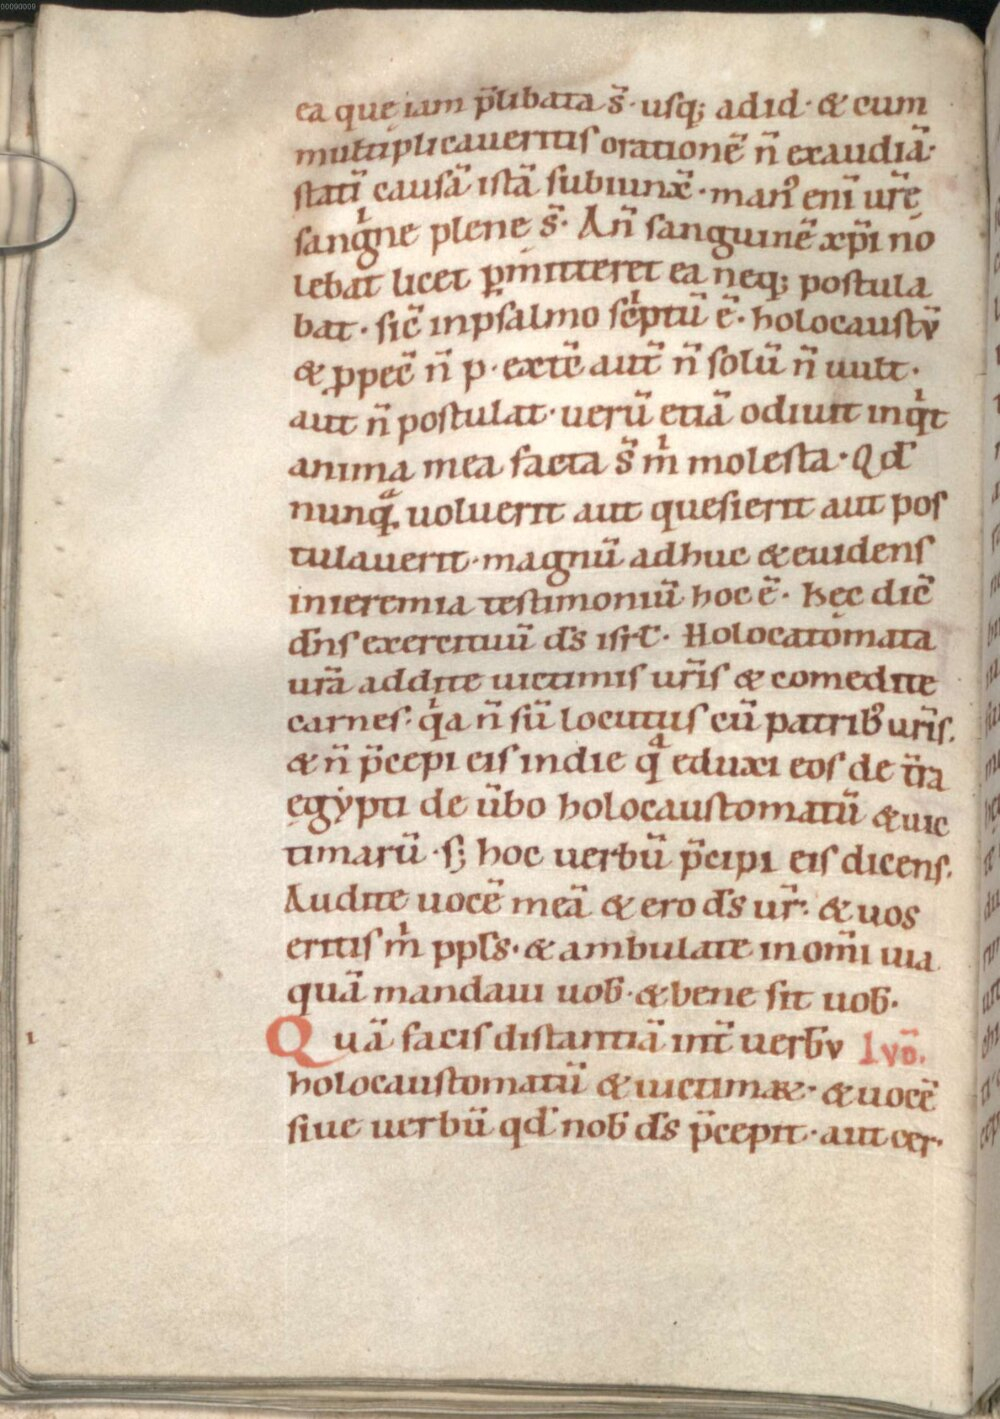 00090009
ea quę iam p̄libata s̄· usq; ad id· & cum
multiplicaveritis orationē n̄ exaudiā·
statī causā istā subiunx̄· man⁹ enī ur̄ę
sangⁱne plene s̄· An̄ sanguinē xp̄i no
lebat licet ꝑmitteret ea neq; postula
bat· sic̄ in psalmo scⁱptū ē· holocaustv̄
& ꝓpec̄ n̄ p· extē aut̄ n̄ solū n̄ uult·
aut n̄ postulat· uerū etiā odiuit inqⁱt
anima mea facta s̄ mⁱ molesta· Qd̄
nunqᵃ uoluerit aut quesierit aut pos
tulauerit· magnū adhuc & euidens
in ieremia testimoniū hoc ē· Hęc dic̄
dn̄s exercituū ds̄ isrł· Holocatōmata
urā addite uictimis ur̄is & comedite
carnes· qⁱa n̄ sū locutus cū patrib⁹ ur̄is·
& n̄ p̄cepi eis in die qᵃ eduxi eos de tr̄a
ęgẏpti de ūbo holocaustomatū & uic
timarū· s; hoc uerbū p̄cipi eis dicens·
Audite uocē meā & ero ds̄ ur̄· & uos
eritis mⁱ ppl̄s· & ambulate in om̄i uia
quā mandaui uob̄· & bene sit uob̄·
Quā facis distantiā int̄ uerbv Ivō·
holocaustomatū & uictimaꝝ· & uocē
siue uerbū qd̄ nob̄ ds̄ p̄cepit· aut cer·